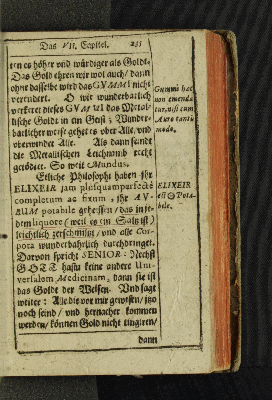 Das VII. Capitel. 235
ren es höher und würdiger als Goldt.
Das Gold ehren wir wol auch / dann
ohne dasselbe wird das GVMMI nicht
verendert. O wie wunderbarlich
verkeret dieses GVMMI das Metal-
lische Goldt in en Geist; Wunder-
barlicher weise gehet es ober Alle / und
oberwindet Alle. Als dann seindt
die Metallischen Leichnamb recht
getödtet. So weit Mundus.
Etliche Philosophi haben ihr
ELIXEIR jam plusquamperfectè
completum ac fixum, ihr AV-
RUM potabile geheissen / das in je-
dem liquore (weil es ein Saltz ist)
leichtlich zerschmiltzt / und alle Cor-
pora wunderbahrlich durchdringet.
Darvon spricht SENIOR: Nechst
GOTT hastu keine andere Uni-
versalem Medicinam, dann sie ist
das Goldt der Weisen. Vnd sagt
weiter: Alle die vor mir gewesen / itzo
noch seind / und hernacher kommen
werden / können Gold nicht tingiren /
dann
Gummi hac
non emenda
tur, nisi cum
Auro tantū
modo.
ELIXEIR
est ☉ Pota-
bile.